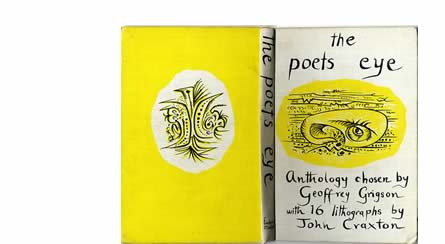 The poets eye
the
poets eye
Anthology chosen by
Geoffrey Grigson
with 16 lithographs by
John Craxton